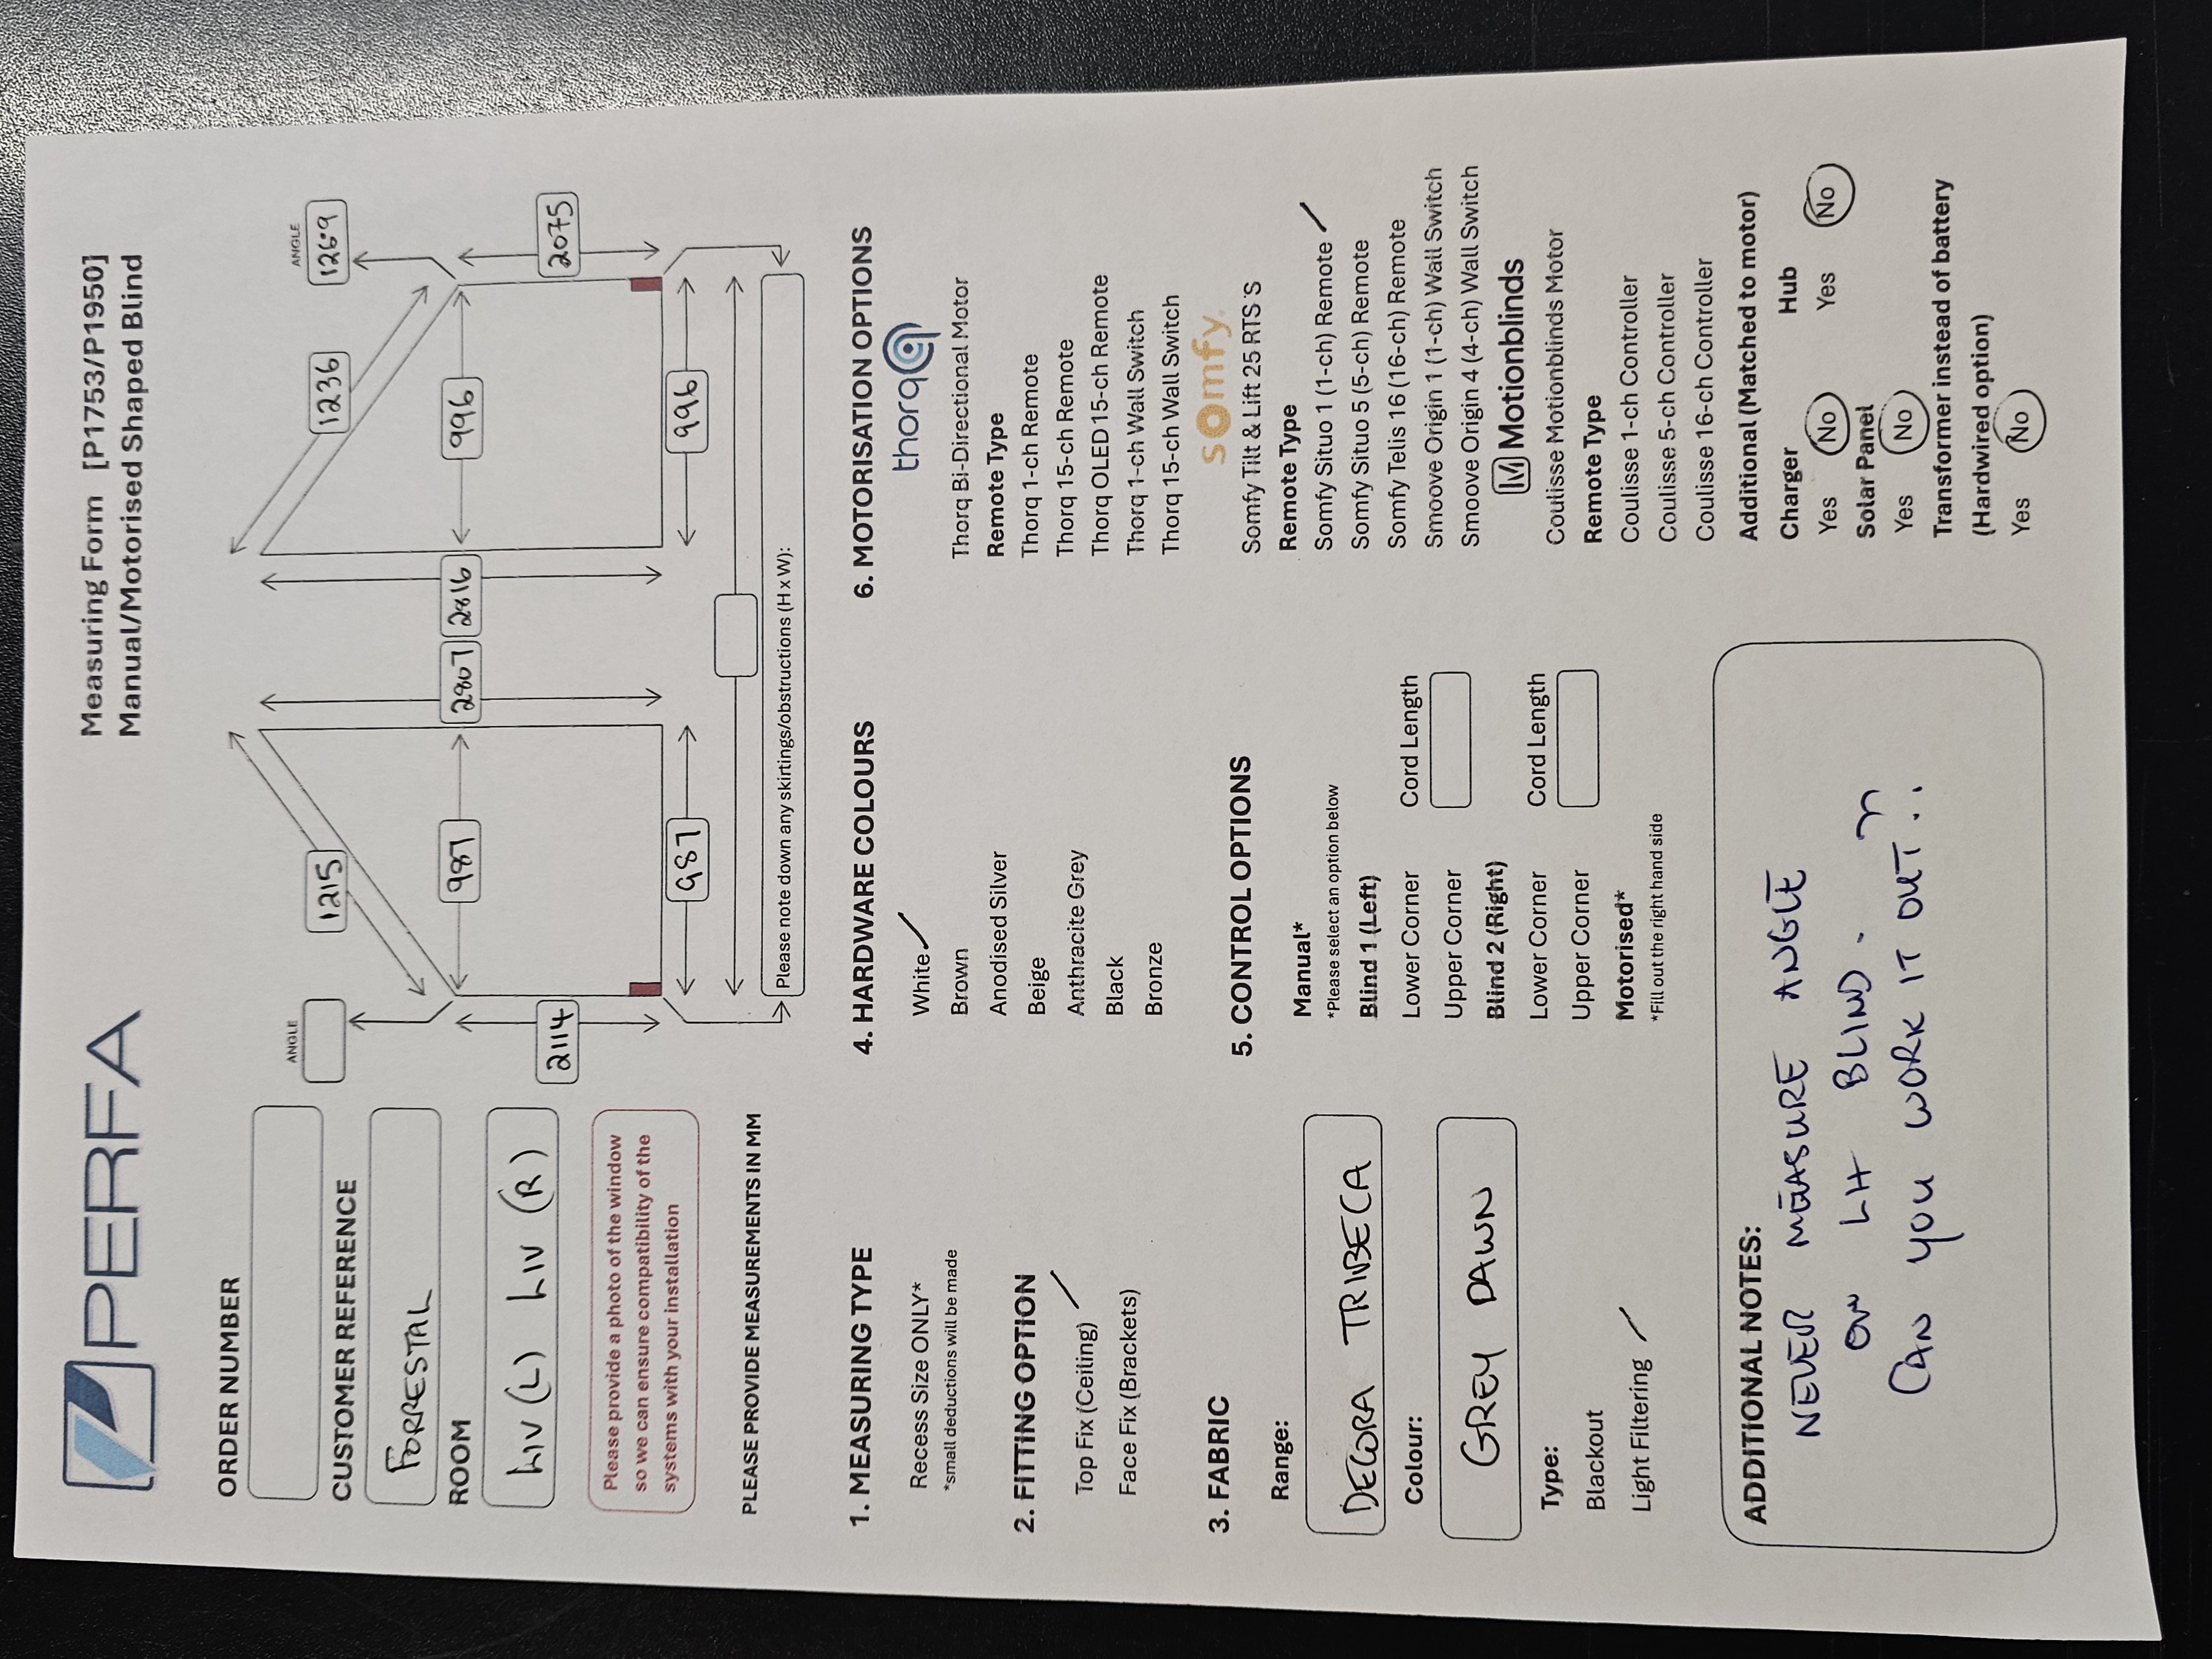 PERFA
Measuring Form [P1753/P1950]
Manual/Motorised Shaped Blind
ORDER NUMBER
CUSTOMER REFERENCE
FORRESTAL
ROOM
LIV (L) LIV (R)
Please provide a photo of the window
so we can ensure compatibility of the
systems with your installation
PLEASE PROVIDE MEASUREMENTS IN MM
ANGLE
1215
1236
ANGLE
126.9
987
2807
2816
996
2114
2075
987
996
Please note down any skirtings/obstructions (H x W):
1. MEASURING TYPE
Recess Size ONLY*
*small deductions will be made
2. FITTING OPTION
Top Fix (Ceiling)
Face Fix (Brackets)
3. FABRIC
Range:
DECORA TRIBECA
Colour:
GREY DAWN
Type:
Blackout
Light Filtering
4. HARDWARE COLOURS
White
Brown
Anodised Silver
Beige
Anthracite Grey
Black
Bronze
5. CONTROL OPTIONS
Manual*
*Please select an option below
Blind 1 (Left)
Lower Corner Cord Length
Upper Corner
Blind 2 (Right)
Lower Corner Cord Length
Upper Corner
Motorised*
*Fill out the right hand side
6. MOTORISATION OPTIONS
thorq
Thorq Bi-Directional Motor
Remote Type
Thorq 1-ch Remote
Thorq 15-ch Remote
Thorq OLED 15-ch Remote
Thorq 1-ch Wall Switch
Thorq 15-ch Wall Switch
somfy.
Somfy Tilt & Lift 25 RTS S
Remote Type
Somfy Situo 1 (1-ch) Remote
Somfy Situo 5 (5-ch) Remote
Somfy Telis 16 (16-ch) Remote
Smoove Origin 1 (1-ch) Wall Switch
Smoove Origin 4 (4-ch) Wall Switch
M Motionblinds
Coulisse Motionblinds Motor
Remote Type
Coulisse 1-ch Controller
Coulisse 5-ch Controller
Coulisse 16-ch Controller
Additional (Matched to motor)
Charger Hub
Yes No Yes No
Solar Panel
Yes No
Transformer instead of battery
(Hardwired option)
Yes No
ADDITIONAL NOTES:
NEVER MEASURE ANGLE
ON LH BLIND.
CAN YOU WORK IT OUT..